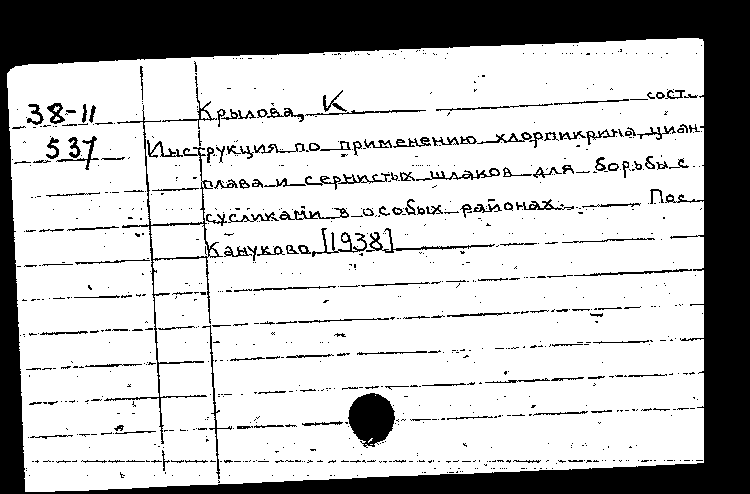 38-11 Крылова, К. сост.
537 Инструкция по применению хлорпикрина, циан-
плава и сернистых шлаков для борьбы с
сусликами в особых районах. Пос.
Кануково, [1938]